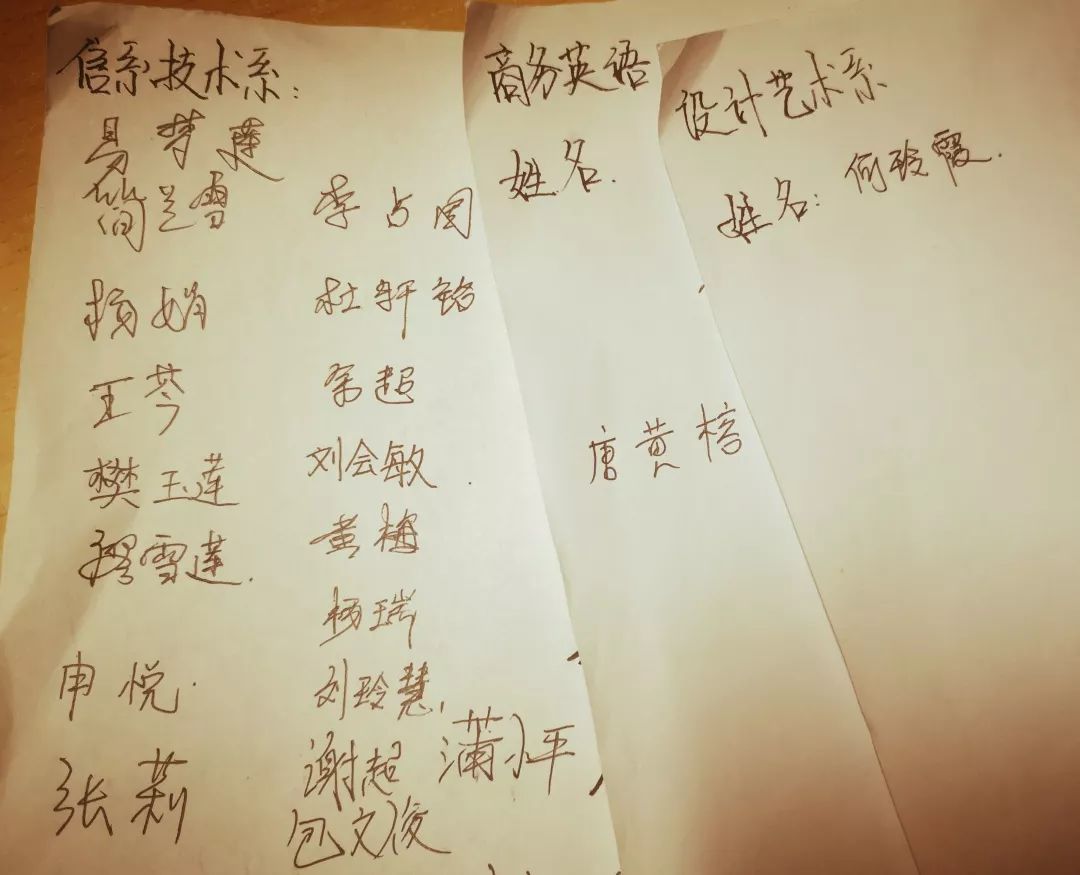 信系技术系:
易梦莲
简兰雪
杨娟
王芩
樊玉莲
穆雪莲.
申悦.
张莉
李占国
杜轩铭
余超
刘会敏.
黄梅
杨瑞
刘玲慧,
谢超 蒲小平
包文俊
商务英语
姓名.
唐黄榕
设计艺术系
姓名: 何玲霞.